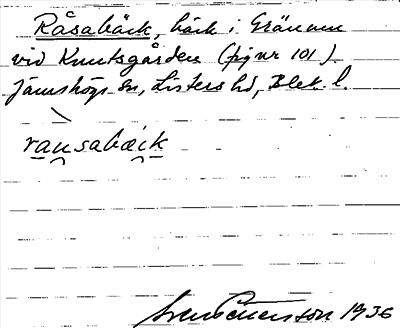 Råsabäck, bäck i Gränum
vid Knutsgården (fig nr 101)
Jämshögs sn, Listers hd, Blek. l.
ransabæck
1936